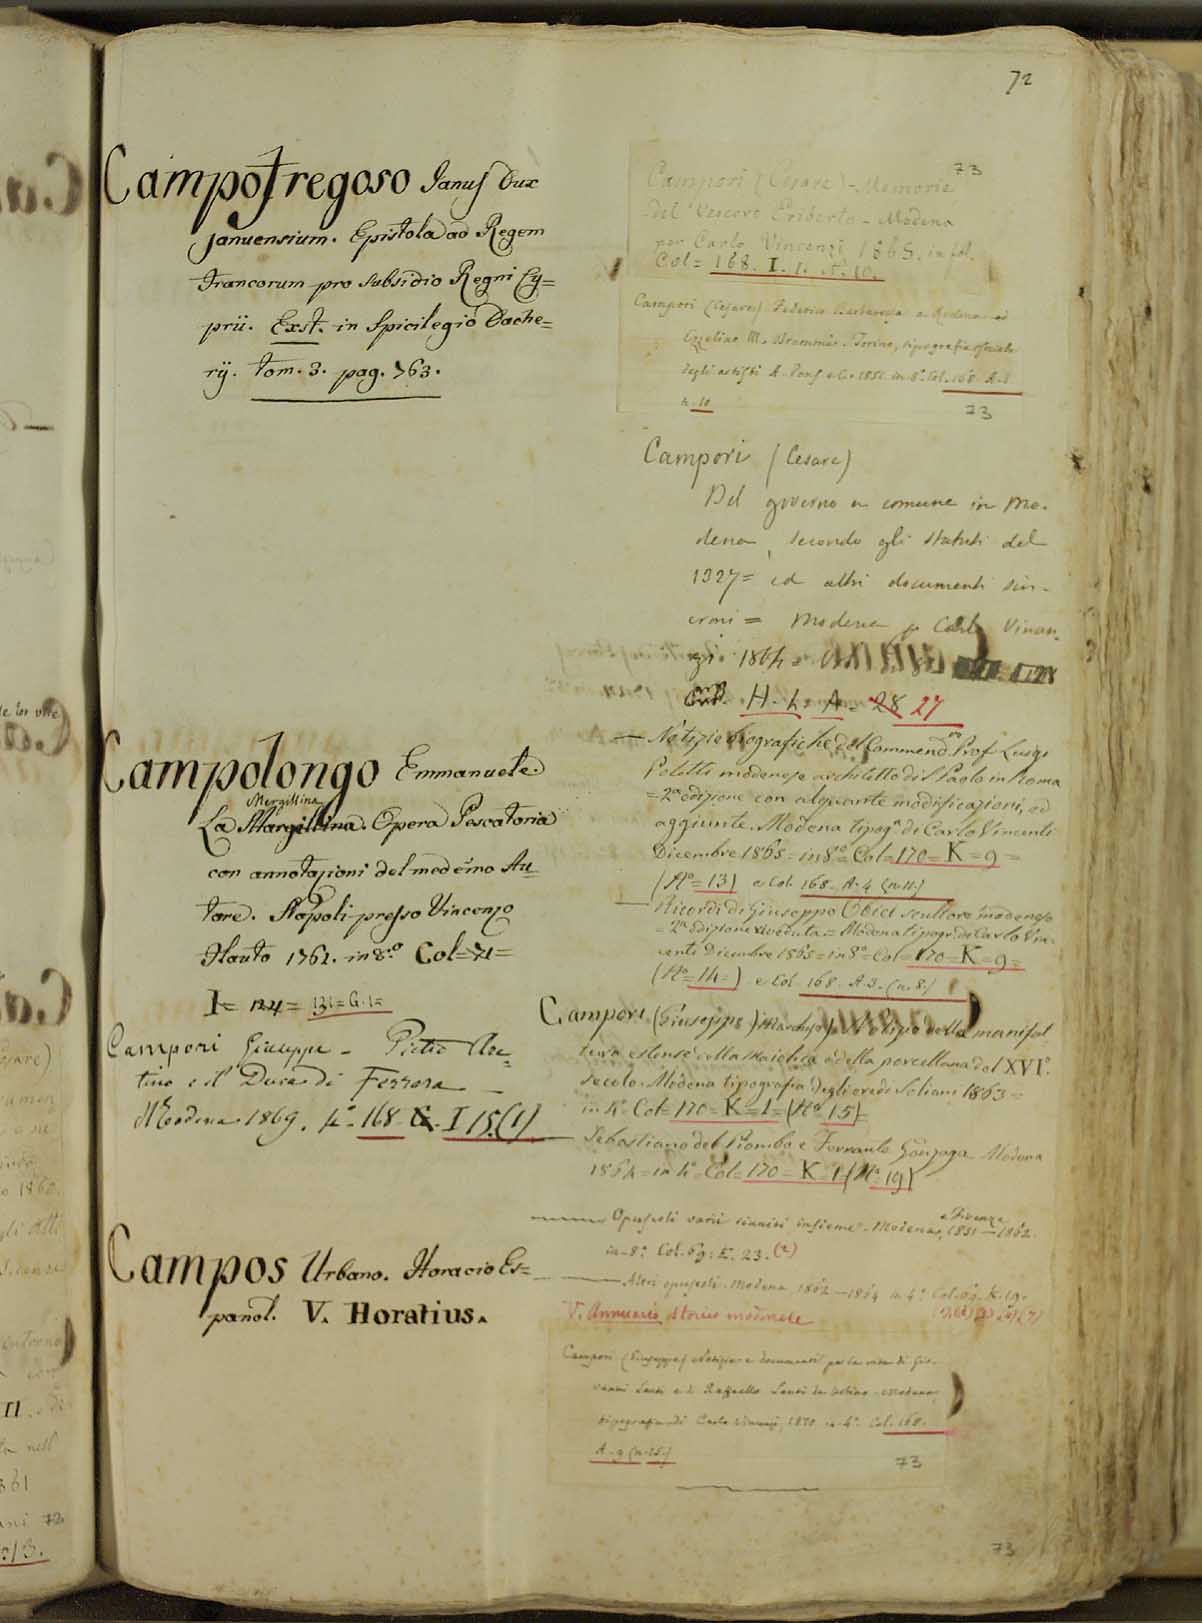 72
Campofregoso Janus Dux
Januensium. Epistola ad Regem
Francorum pro subsidio Regni Cy=
prii. Exst. in Spicilegio Dache=
rij. tom. 3. pag. 763.
Campolongo Emmanuele.
Mergillina
La Margillina. Opera Pescatoria
con annotazioni del medemo Au=
tore. Napoli presso Vincenzo
Flauto 1761. in 8.º Col=71=
I= 124= 131=G.1=
Campori Giuseppe - Pietro Are=
tino e il Duca di Ferrara
Modena 1869. 4º 168 G. I 15.(1)
Campos Urbano. Horacio Es=
panol. V. Horatius.
73
Campori (Cesare) - Memorie
del Vescovo Eriberto - Modena
per Carlo Vincenzi 1865. in fol.
Col= 168. I. 1. Nº 10.
Campori (Cesare) Federico Barbarossa a Modena ed
Ezzelino III. Drammi. Torino, tipografia sociale
degli artisti A. Pons e C. 1851 in 8º. Col. 168 A.3
n. 10
73
Campori (Cesare)
Del governo a comune in Mo-
dena, secondo gli statuti del
1327= ed altri documenti sin-
croni = Modena p Carlo Vincen-
zi. 1864 =
H. 4= A= 28 27
— Notizie biografiche del Commend. Prof. Luigi
Poletti modenese architetto di S. Paolo in Roma
=2ª edizione con alquante modificazioni, ed
aggiunte. Modena tipogª di Carlo Vincenti
Dicembre 1865= in 8º= Col=170=K=9=
(Nº=13) e Col. 168. A.4 (n.11.)
— Ricordi di Giuseppe Obici scultore modenese
=2ª edizione riveduta.= Modena tipogr. di Carlo Vin-
centi Dicembre 1865=in 8º=Col=170=K=9=
(Nº=14=) e Col. 168. A.3.(n.8.)
Campori (Giuseppe) Marchese= Notizie della manifat-
tura estense della maiolica e della porcellana del XVIº.
secolo. Modena tipografia degli eredi Soliani 1863=
in 4º Col=170=K=1=(Nº 15)=
— Sebastiano del Piombo e Ferrante Gonzaga Modena
1864=in 4º=Col=170=K=1(Nº 19)
e Firenze
— Opuscoli varii riuniti insieme. Modena, 1851—1862.
in-8º. Col. 69: E. 23.(2)
— Altri opuscoli. Modena 1862—1864 in 4º. Col. 69. K. 19.
V. Annuario storico modenese
Campori (Giuseppe) Notizie e documenti per la vita di Gio-
vanni Santi e di Raffaello Santi da Urbino. Modena,
tipografia di Carlo Vincenzi, 1870 in-4º. Col. 168.
A. 9 (n.15.)
73
73